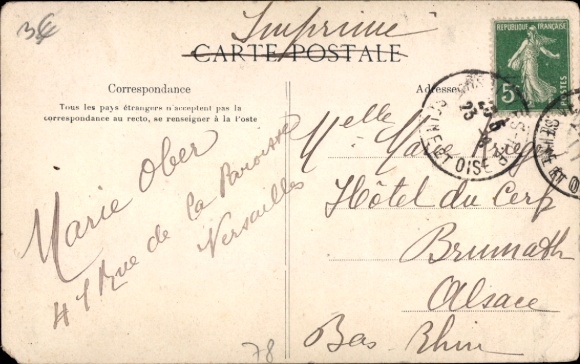 3€
Imprimé
CARTE POSTALE
RÉPUBLIQUE FRANÇAISE
5
POSTES
Correspondance
Adresse
Tous les pays étrangers n'acceptent pas la
correspondance au recto, se renseigner à la Poste
SEINE ET OISE
Marie Ober
41 Rue de la Paroisse
Versailles
Melle Marie
Hôtel du Cerf
Brumath
Alsace
Bas Rhin
78